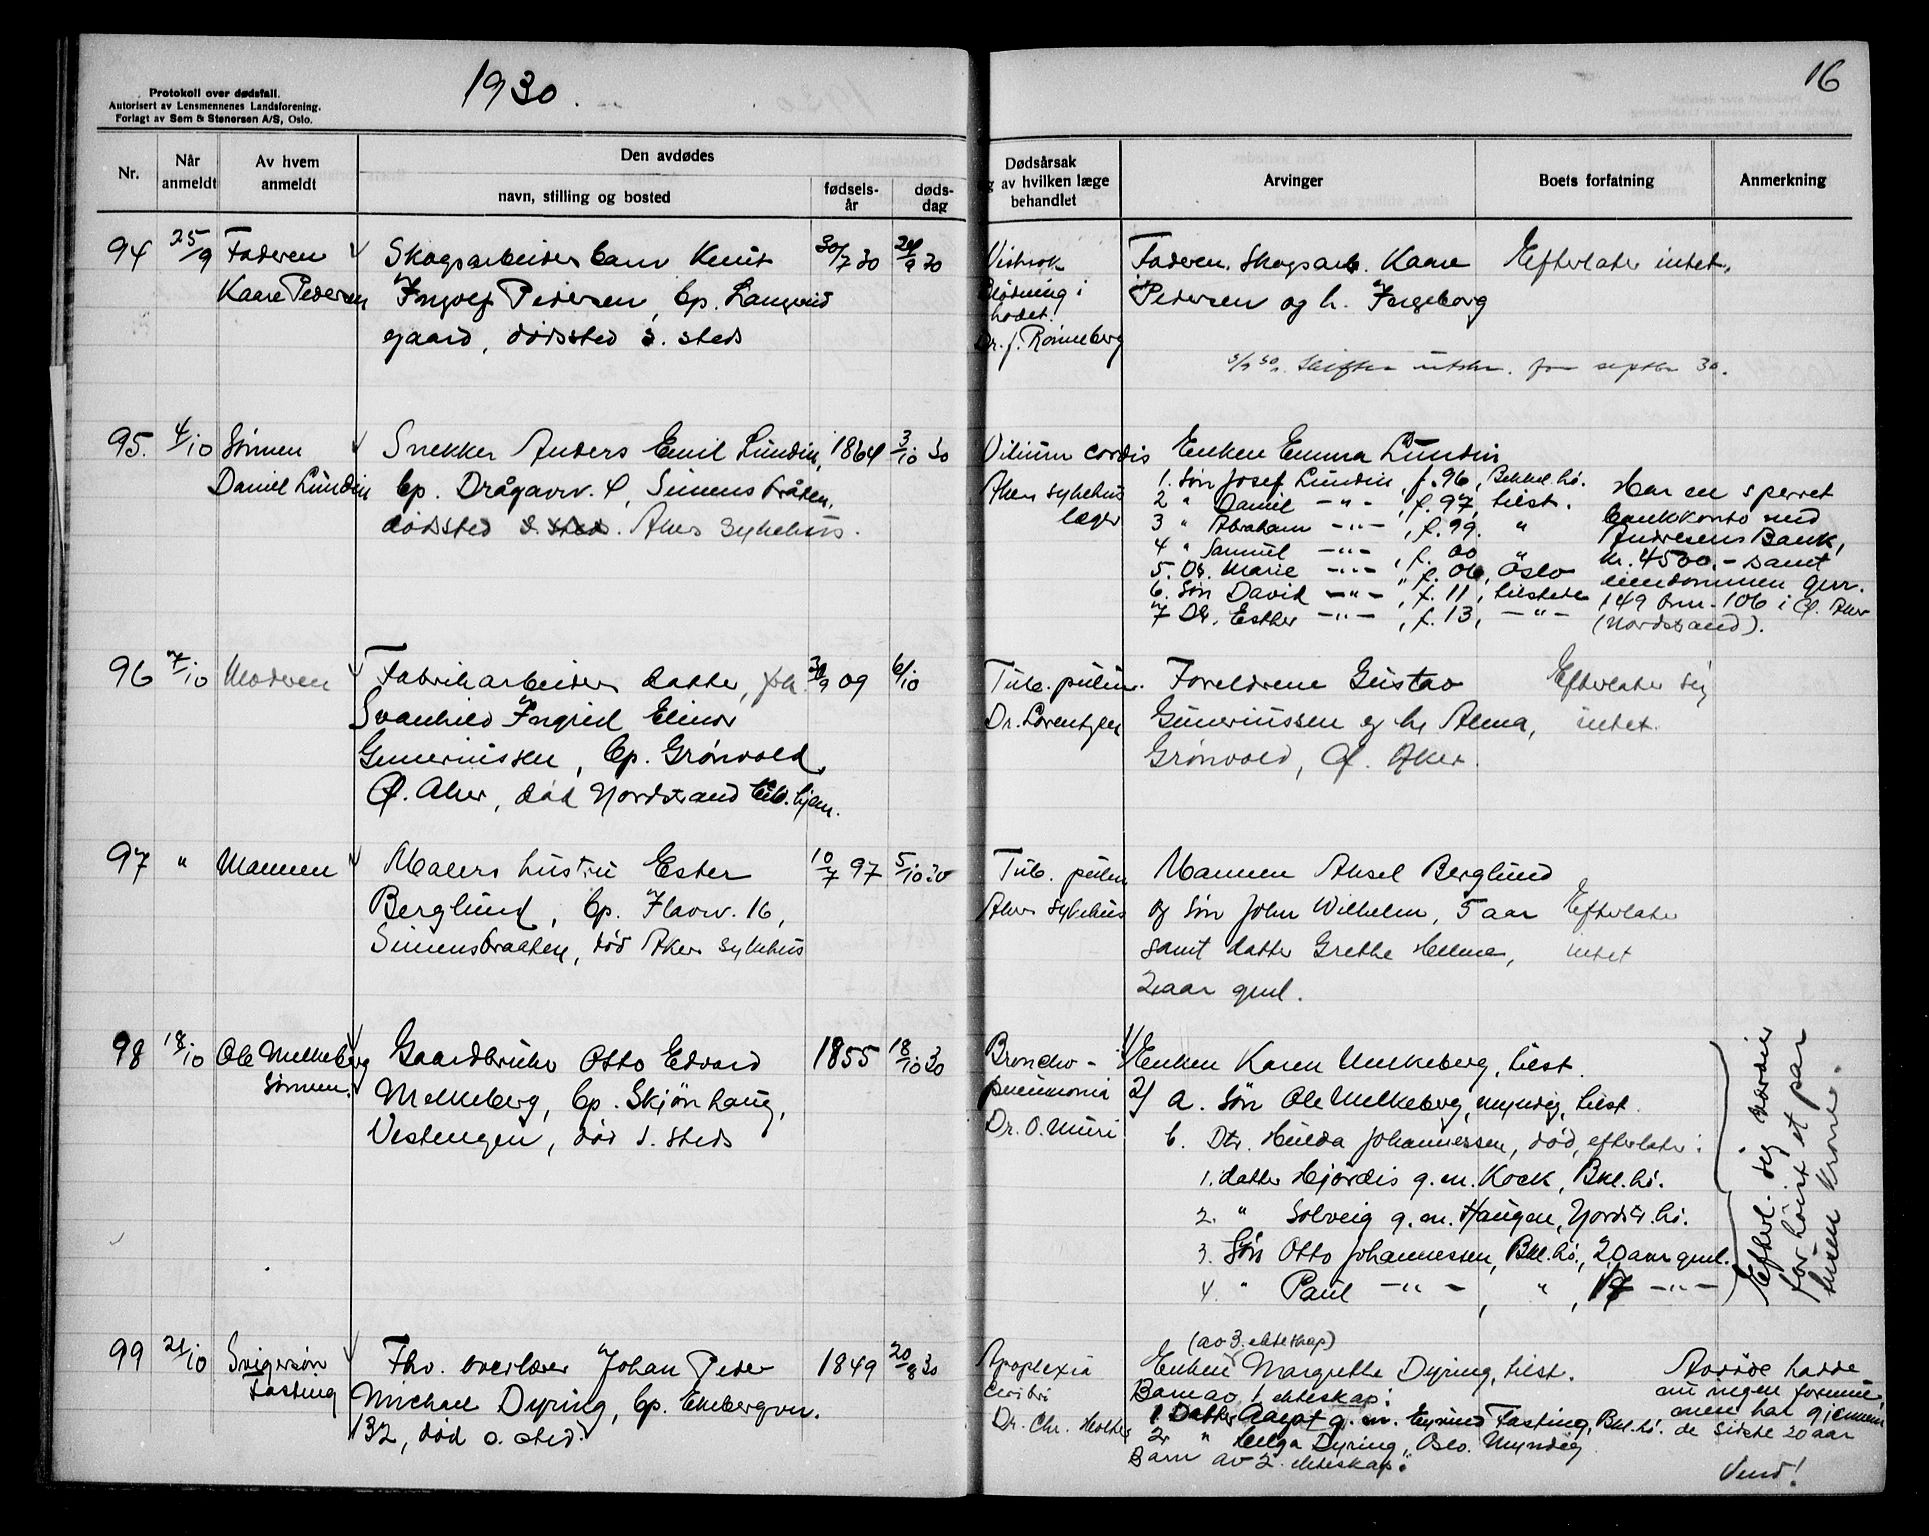 1930.
16
Protokoll over dødsfall.
Autorisert av Lensmennenes Landsforening.
Forlagt av Sem & Stenersen A/S, Oslo.
Nr.
Når anmeldt
Av hvem anmeldt
Den avdødes
navn, stilling og bosted
fødsels-år
døds-dag
Dødsårsak
og av hvilken læge
behandlet
Arvinger
Boets forfatning
Anmerkning
94 25/9 Faderen Skogsarbeider barn Knut 30/7 30
Kaare Pedersen Ingolf Pedersen, bp. Langvid
gaard, dødssted s. steds
blødning i
hodet.
Dr. J. Rønneberg
Faderen, Skogsarb. Kaare Efterlater intet.
Pedersen og h. Ingeborg
Skiftem utskr. for septbr 30.
95. 4/10 Sønnen Snekker Anders Emil Lundin, 1864 3/10 30
Daniel Lundin bp. Drågavv. 4, Simensbråten,
dødssted s. sted. Akers Sykehus.
Vitium cordis
Akers sykehus
læger
Enken Emma Lundin
1. Søn Josef Lundin, f. 96, Bekkel.hø.
2 " Daniel -"-, f. 97, tilst.
3 " Abraham -"-, f. 99. "
4 " Samuel -"-, f. 00 "
5. Dt. Marie -"- " f. 06, Oslo
6. Søn David -"-, f. 11, tilstede
7 Dtr. Esther -"-, f. 13, -"-
Har en sperret
bankkonto med
Andresens Bank,
kr. 4500.- samt
eiendommen gnr.
149 bnr. 106 i Ø. Aker
(Nordstrand).
96 7/10 Moderen Fabrikarbeider datter, frk. 09 6/10
Svanhild Ingrid Elinor
Guneriussen, bp. Grønvold
Ø. Aker, død Nordstrand tub. hjem.
Tub. pulm.
Dr. Lorentzen
Foreldrene Gustav
Guneriussen og h. Alma,
Grønvold, Ø. Aker.
Efterlater sig
intet.
97 " Mannen Malers hustru Ester 10/7 97 5/10 30
Berglund, bp. Flavv. 16,
Simensbraaten, død Aker sykehus
Tub. pulm
Akers sykehus
Mannen Aksel Berglund
og søn John Wilhelm, 5 aar
samt datter Grethe Helene,
2 aar gml.
Efterlater
intet
98 18/10 Ole Melkeberg Gaardbruker Otto Edvard 1855 18/10 30
sønnen. Melkeberg, bp. Skjønhaug,
Vestengen, død s. steds
Broncho-
pneumonia
Dr. O. Muri
1/ Enken Karen Melkeberg, tilst.
2/ a. Søn Ole Melkeberg, myndig, tilst.
b. Dtr. Hulda Johannessen, død, efterlater:
1. datter Hjørdis g.m. Kock, Bkl.hø.
2. " Solveig g.m. Haugen, Nordstr.hø.
3. Søn Otto Johannessen, Bkl.hø., 20 aar gml.
4. " Paul -"-, ", 17 -"-
Efterl. sig værdier
for høist et par
tusen kroner.
99 21/10 Svigersøn Fhv. overlærer Johan Peter 1849 20/8 30
Fasting Michael Dyring, bp. Ekebergvn.
132, død s. sted.
Apoplexia
cerebri
Dr. Chr. Holter
(av 3. ekteskap)
Enken Margrethe Dyring, tilst.
Barn av 1. ekteskap:
1 Datter Aagot g.m. Eyvind Fasting, Bkl.hø.
2. " Helga Dyring, Oslo. Myndig
Barn av 2. ekteskap:
Avdøde hadde
nu ingen formue,
men har gjennem
de sidste 20 aar
Vend!